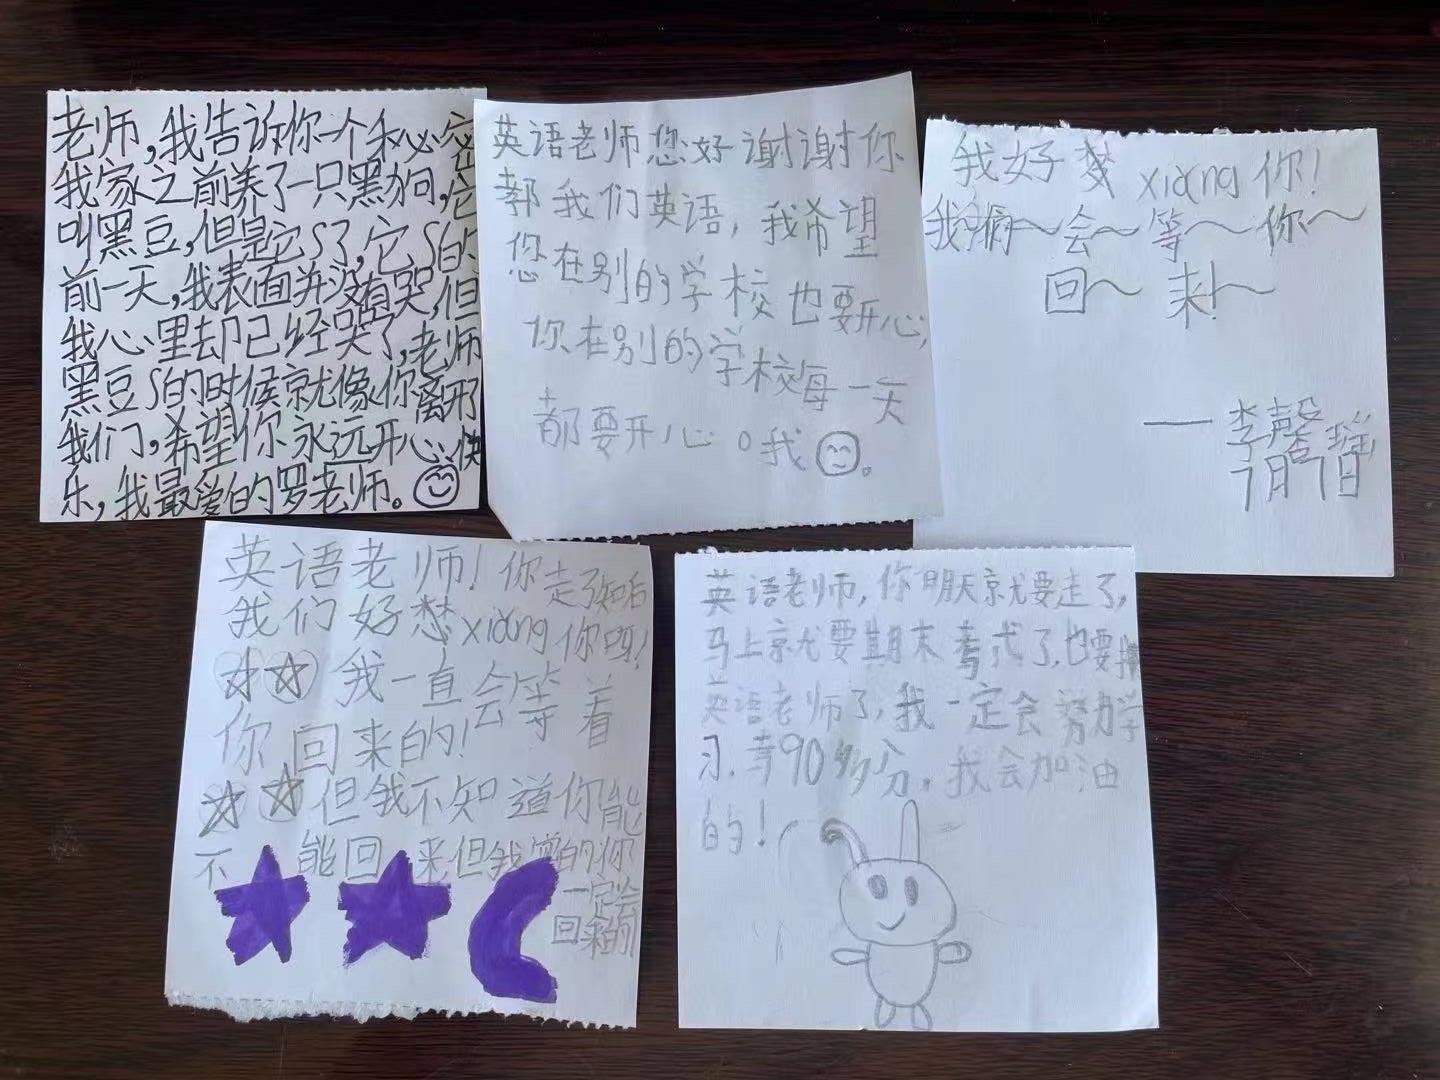 老师,我告诉你一个秘密
我家之前养了一只黑狗,它
叫黑豆,但是它S了,它S的
前一天,我表面并没有哭,但
我心里却已经哭了,老师
黑豆S的时候就像你离开
我们,希望你永远开心快
乐,我最爱的罗老师。
英语老师您好谢谢你
我们英语,我希望
您在别的学校也要开心,
你在别的学校每一天
都要开心。我。
我好 xiǎng你!
我们~会~等~你~
回~来!~
——李馨瑶
7月7日
英语老师!你走了知后
我们好想xiǎng你呀!
我一直会等着
你回来的!
但我不知道你能
不能回来但我的你
一定会
回来的!
英语老师,你明天就要走了,
马上就要期末考试了,也要
英语老师了,我一定会努力学
习,考90多分,我会加油
的!